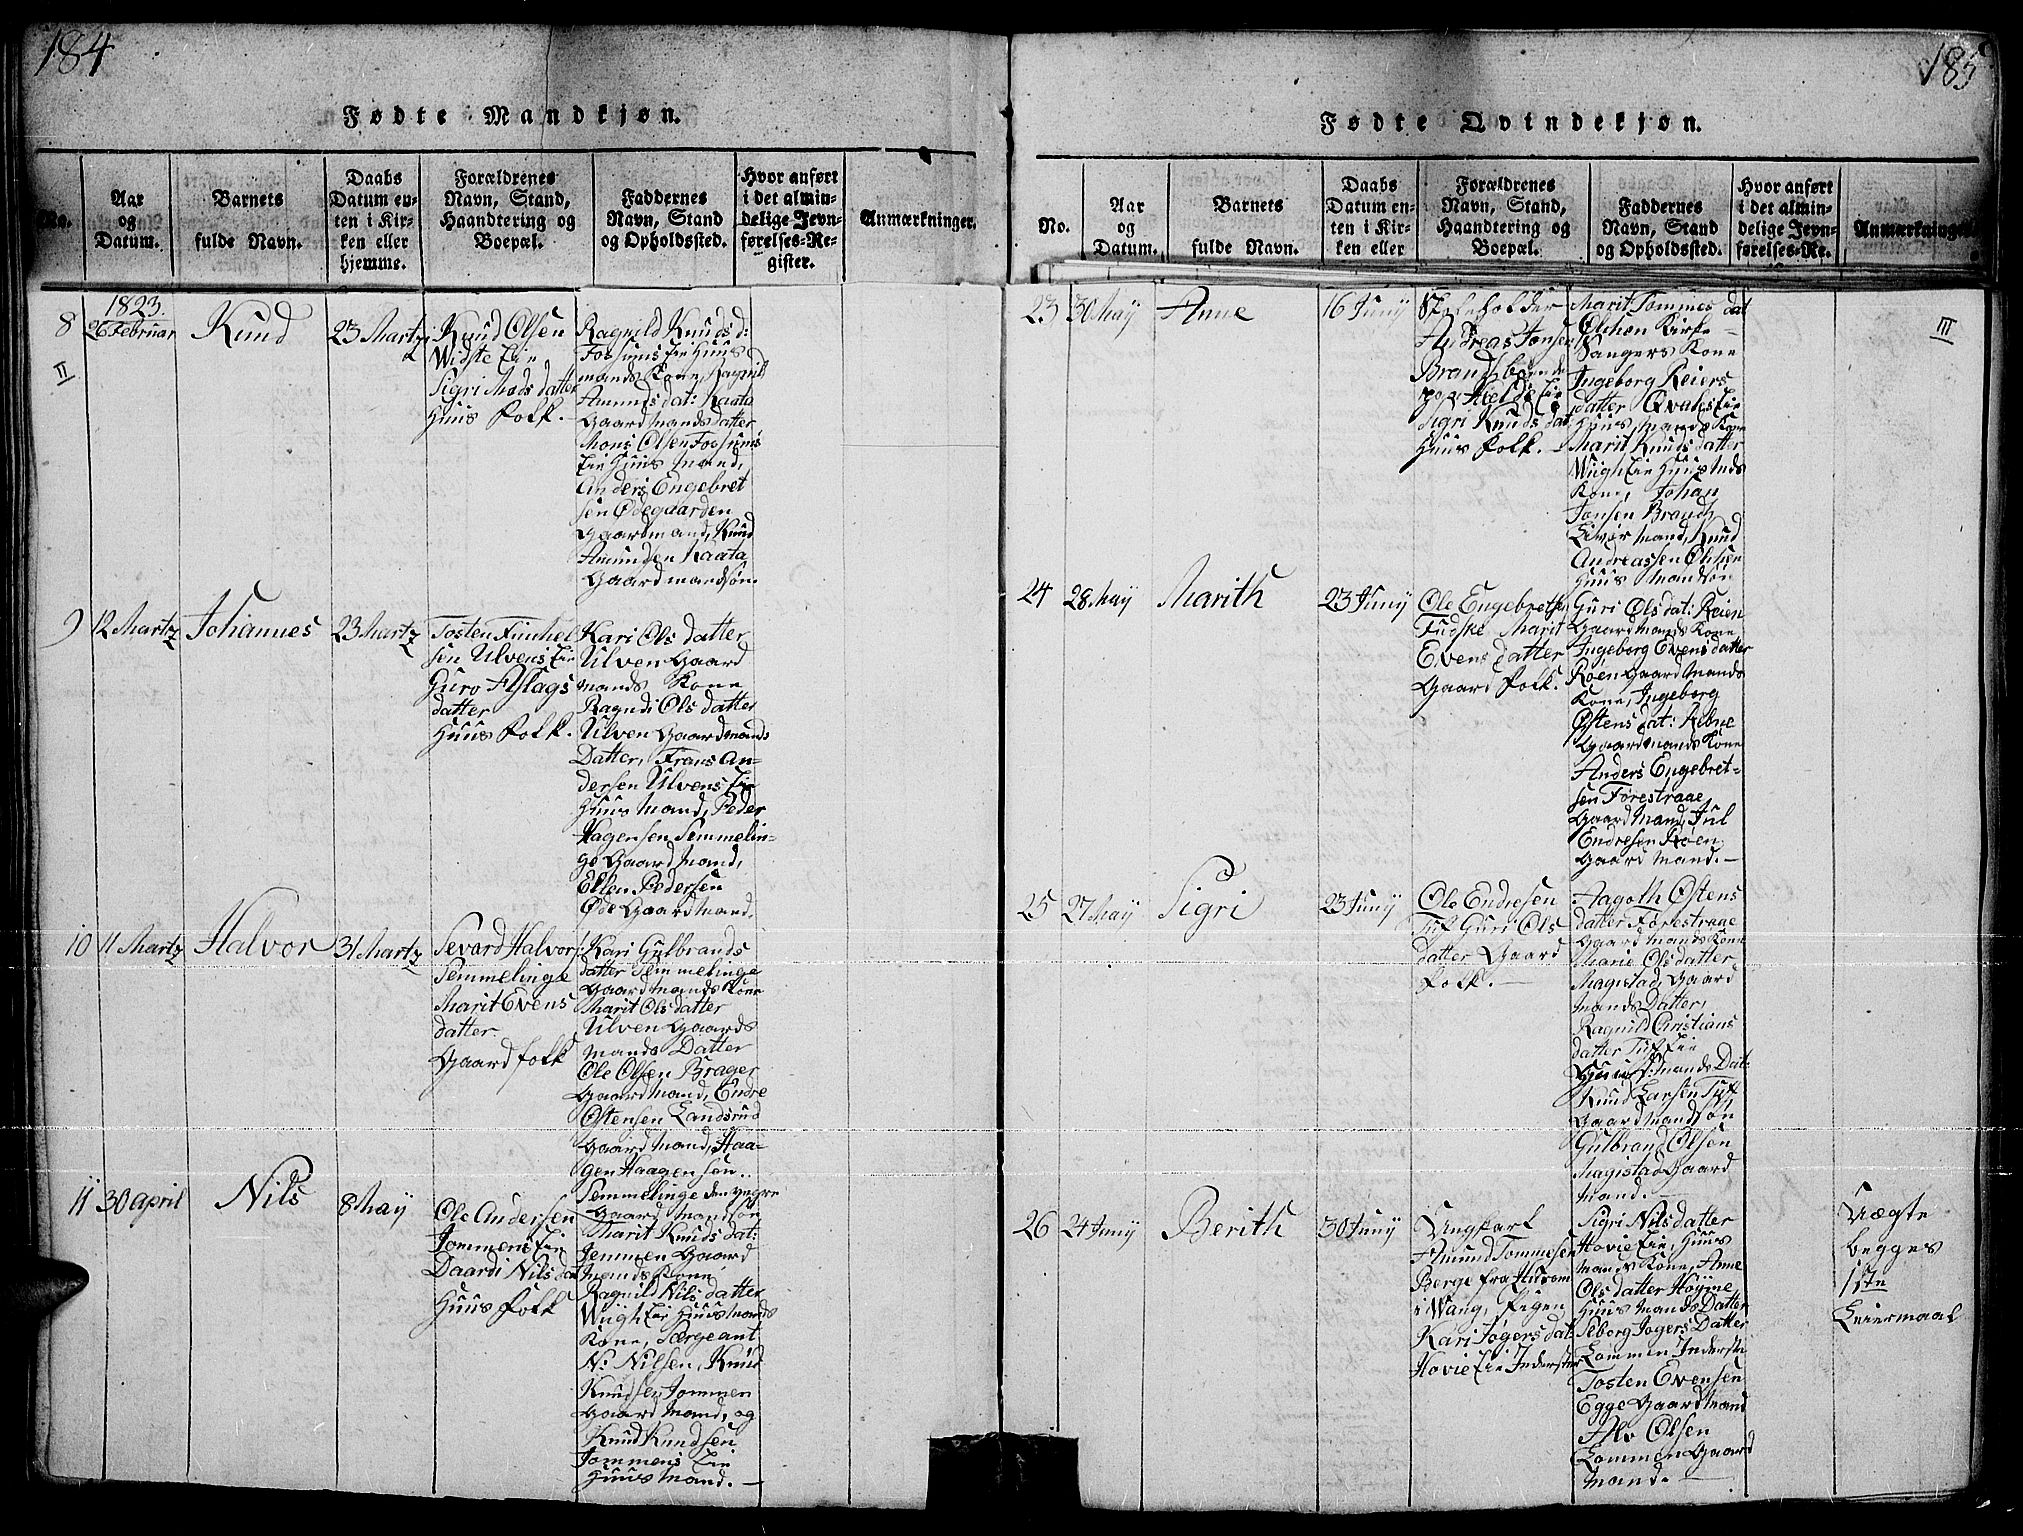 184
Fødte Mandkjøn.
No.
Aar
og
Datum.
Barnets
fulde Navn.
Daabs
Datum en-
ten i Kir-
ken eller
hjemme.
Forældrenes
Navn, Stand,
Haandtering og
Boepæl.
Faddernes
Navn, Stand
og Opholdssted.
Hvor anført
i det almin-
delige Jevn-
førelses-Re-
gister.
Anmærkninger.
1823.
8
II
26 Februar
Knud
23 Martz
Knud Olsen
Widste Eie
Sigri Mads datter
Huus Folk.
Ragnild Knuds d:
Fossums Eie Huus
mands Kone, Ragnild
Amunds dat: Kaata
Gaard mands datter
Mons Olsen Fossums
Eie Huus Mand,
Anders Engebret
sen Ødegaarden
Gaardmand, Knud
Amundsen Kaata
Gaard mandsøn.
9
12 Martz
Johannes
23 Martz
Tosten Finkel
sen Ulvens Eie
Guro Aslags
datter
Huus Folk.
Kari Ols datter
Ulven Gaard
mands Kone
Ragndi Ols datter
Ulven Gaardmands
Datter, Frans An-
dersen Ulvens Eie
Huus Mand, Peder
Hagensen Semmelin-
ge Gaard Mand,
Ellen Pedersen
Øde Gaard Mand.
10
11 Martz
Halvor
31 Martz
Sevard Halvors:
Semmelinge
Marit Evens
datter
Gaard folk
Kari Gulbrands
datter Semmelinge
Gaard mands Kone
Marit Ols datter
Ulven Gaards
Mands Datter
Ole Olsen Brager
Gaard Mand, Endre
Østensen Landsrud
Gaard Mand, Haa-
gen Haagensen
Semmelinge den yngre
Gaard Mandsøn
11
30 april
Nils
8 May
Ole Andersen
Jommens Eie
Daardi Nils dat
Huus Folk
Marit Knuds dat:
Jemmen Gaard
Mands Kone
Ragnild Nils datter
Wiigh Eie Huus Mands
Kone, Særgeant
N: Nilsen, Knud
Knudsen Jommen
Gaard Mand, og
Knud Knudsen
Jommens Eie
Huus Mand. —
185
Fødte Qvindekjøn.
No.
Aar
og
Datum.
Barnets
fulde Navn.
Daabs
Datum en-
ten i Kir-
ken eller
Forældrenes
Navn, Stand,
Haandtering og
Boepæl.
Faddernes
Navn, Stand
og Opholdssted.
Hvor anført
i det almin-
delige Jevn-
førelses-Re-
Anmærkninger.
III
23
30 May
Anne
16 Juny
Skoleholder
Andreas Jonsen
Brands boende
paa Kields Eie
Sigri Knuds dat
Huus Folk. —
Marit Tommes dat
Ølchen Kirke-
Sangers Kone
Ingeborg Reiers
datter Qvales Eie
Huus Mands Kone
Marit Knuds datter
Wiigh Eie Huus Mds
Kone, Johan
Jonsen Brands
Liver Mand, Knud
Andreassen Ølchen
Huus Mandsøn
24
28 May
Marith
23 Juny
Ole Engebretsen
Fudske Marit
Evens datter
Gaard Folk.
Guri Ols dat: Reien
Gaard Mands Kone
Ingeborg Evens datter
Røen Gaard Mands
Kone, Ingeborg
Østens dat: Rebne
Gaard Mands Kone
Anders Engebret-
sen Førestraae
Gaard Mand, Jul
Endresen Røen
Gaard Mand. —
25
27 May
Sigri
23 Juny
Ole Endresen
Tuf Guri Ols
datter Gaard
Folk. —
Aagoth Østens
datter Førestraae
Gaard Mands Kone
Marie Ols datter
Magistad Gaard
Mands Datter,
Ragnild Christians
datter Tuf Eie
Huus Mands Dat:
Knud Larsen Tuf
Gaard Mandsøn
Gulbrand Olsen
Magistad Gaard
Mand. —
26
24 Juny
Berith
30 Juny
Ungkarl
Amund Tommesen
Berge fra Hurom
i Wang, Pigen
Kari Jøgers dat
Hovie Eie Inderster
Sigri Nils datter
Hovie Eie, Huus
Mands Kone, Anne
Ols datter Høyme
Huus Mands Datter
Seborg Jogers Datter
Lommen Inderste
Tosten Evensen
Egge Gaard Mand
Alv Olsen
Lommen Gaard
Mand. —
Uægte
begges
1ste
Leiermaal